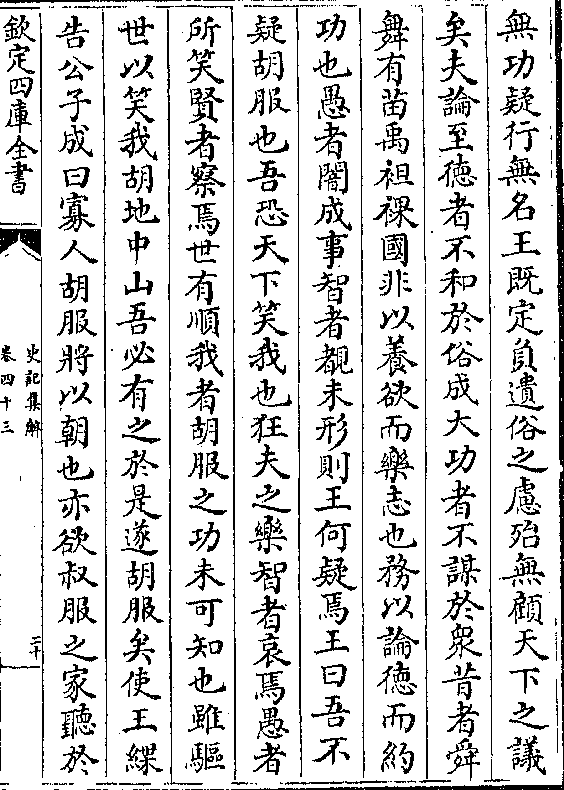 無功疑行無名王既定負遺俗之慮殆無顧天下之議
矣夫論至徳者不和於俗成大功者不謀於衆昔者舜
舞有苗禹袒裸國非以養欲而樂志也務以論徳而約
功也愚者闇成事智者覩未形則王何疑焉王曰吾不
疑胡服也吾恐天下笑我也狂夫之樂智者哀焉愚者
所笑賢者察焉世有順我者胡服之功未可知也雖驅
世以笑我胡地中山吾必有之於是遂胡服矣使王緤
告公子成曰寡人胡服將以朝也亦欲叔服之家聽於
欽定四庫全書
史記集解
卷四十三
二十